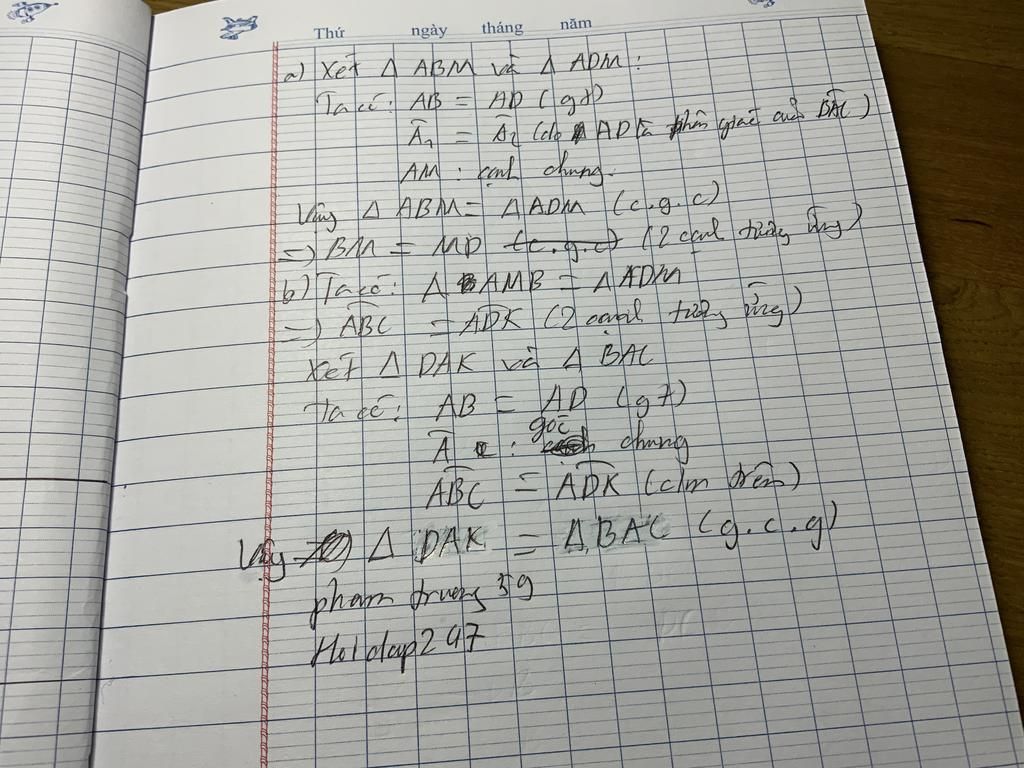 Thứ ngày tháng năm
a) Xét Δ ABM và Δ ADM :
Ta có : AB = AD ( gt )
Â₁ = Â₂ (do AD là phân giác của BAC )
AM : cạnh chung.
Vậy Δ ABM = Δ ADM ( c.g.c )
=) BM = MD (c.g.c) ( 2 cạnh tương ứng )
b) Ta có : Δ AMB = Δ ADM
=) ABC = ADK ( 2 cạnh tương ứng )
Xét Δ DAK và Δ BAC
Ta có : AB = AD ( gt )
Â : góc chung
ABC = ADK ( c/m trên )
Vậy Δ DAK = Δ BAC ( g.c.g )
pham truong 59
Hoi dap 2 47